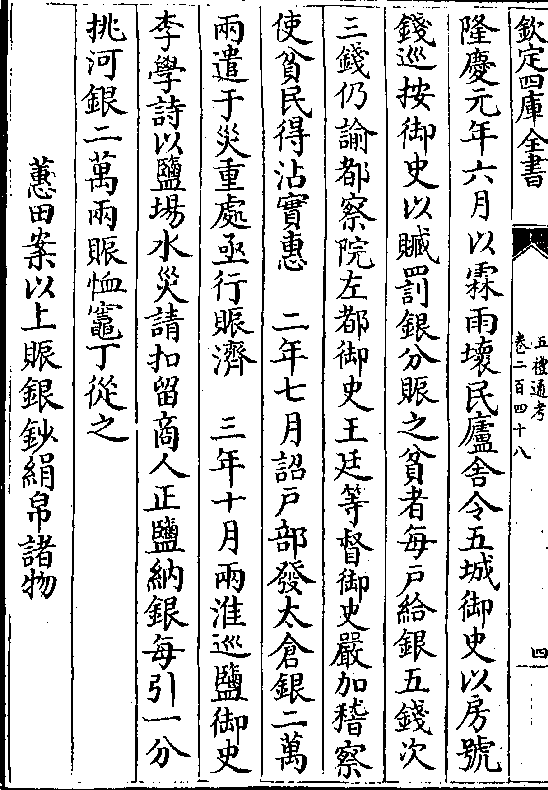 欽定四庫全書
五禮通考
卷二百四十八
四
隆慶元年六月以霖雨壞民廬舍令五城御史以房號
錢巡按御史以贓罰銀分賑之貧者每戶給銀五錢次
三錢仍諭都察院左都御史王廷等督御史嚴加稽察
使貧民得沾實惠　二年七月詔戶部發太倉銀二萬
兩遣于災重處亟行賑濟　三年十月兩淮巡鹽御史
李學詩以鹽場水災請扣留商人正鹽納銀每引一分
挑河銀二萬兩賑恤竈丁從之
蕙田案以上賑銀鈔絹帛諸物